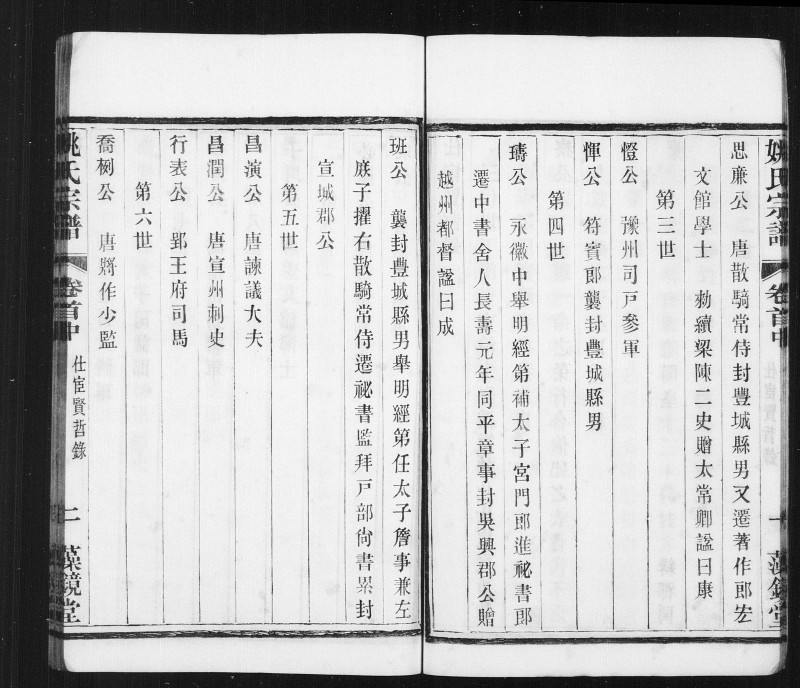 姚氏宗譜 卷首中 一 藻鏡堂
思廉公 唐散騎常侍封豐城縣男又遷著作郎宏
文館學士 勑續梁陳二史贈太常卿諡曰康
第三世
憕公 豫州司戸參軍
惲公 符寶郎襲封豐城縣男
第四世
璹公 永徽中舉明經第補太子宮門郎進祕書郎
遷中書舍人長壽元年同平章事封吳興郡公贈
越州都督諡曰成
班公 襲封豐城縣男舉明經第任太子詹事兼左
庶子擢右散騎常侍遷祕書監拜戸部尙書累封
宣城郡公
第五世
昌演公 唐諫議大夫
昌潤公 唐宣州刺史
行表公 郢王府司馬
第六世
喬栵公 唐將作少監
姚氏宗譜 卷首中 仕宦賢哲錄 二 藻鏡堂